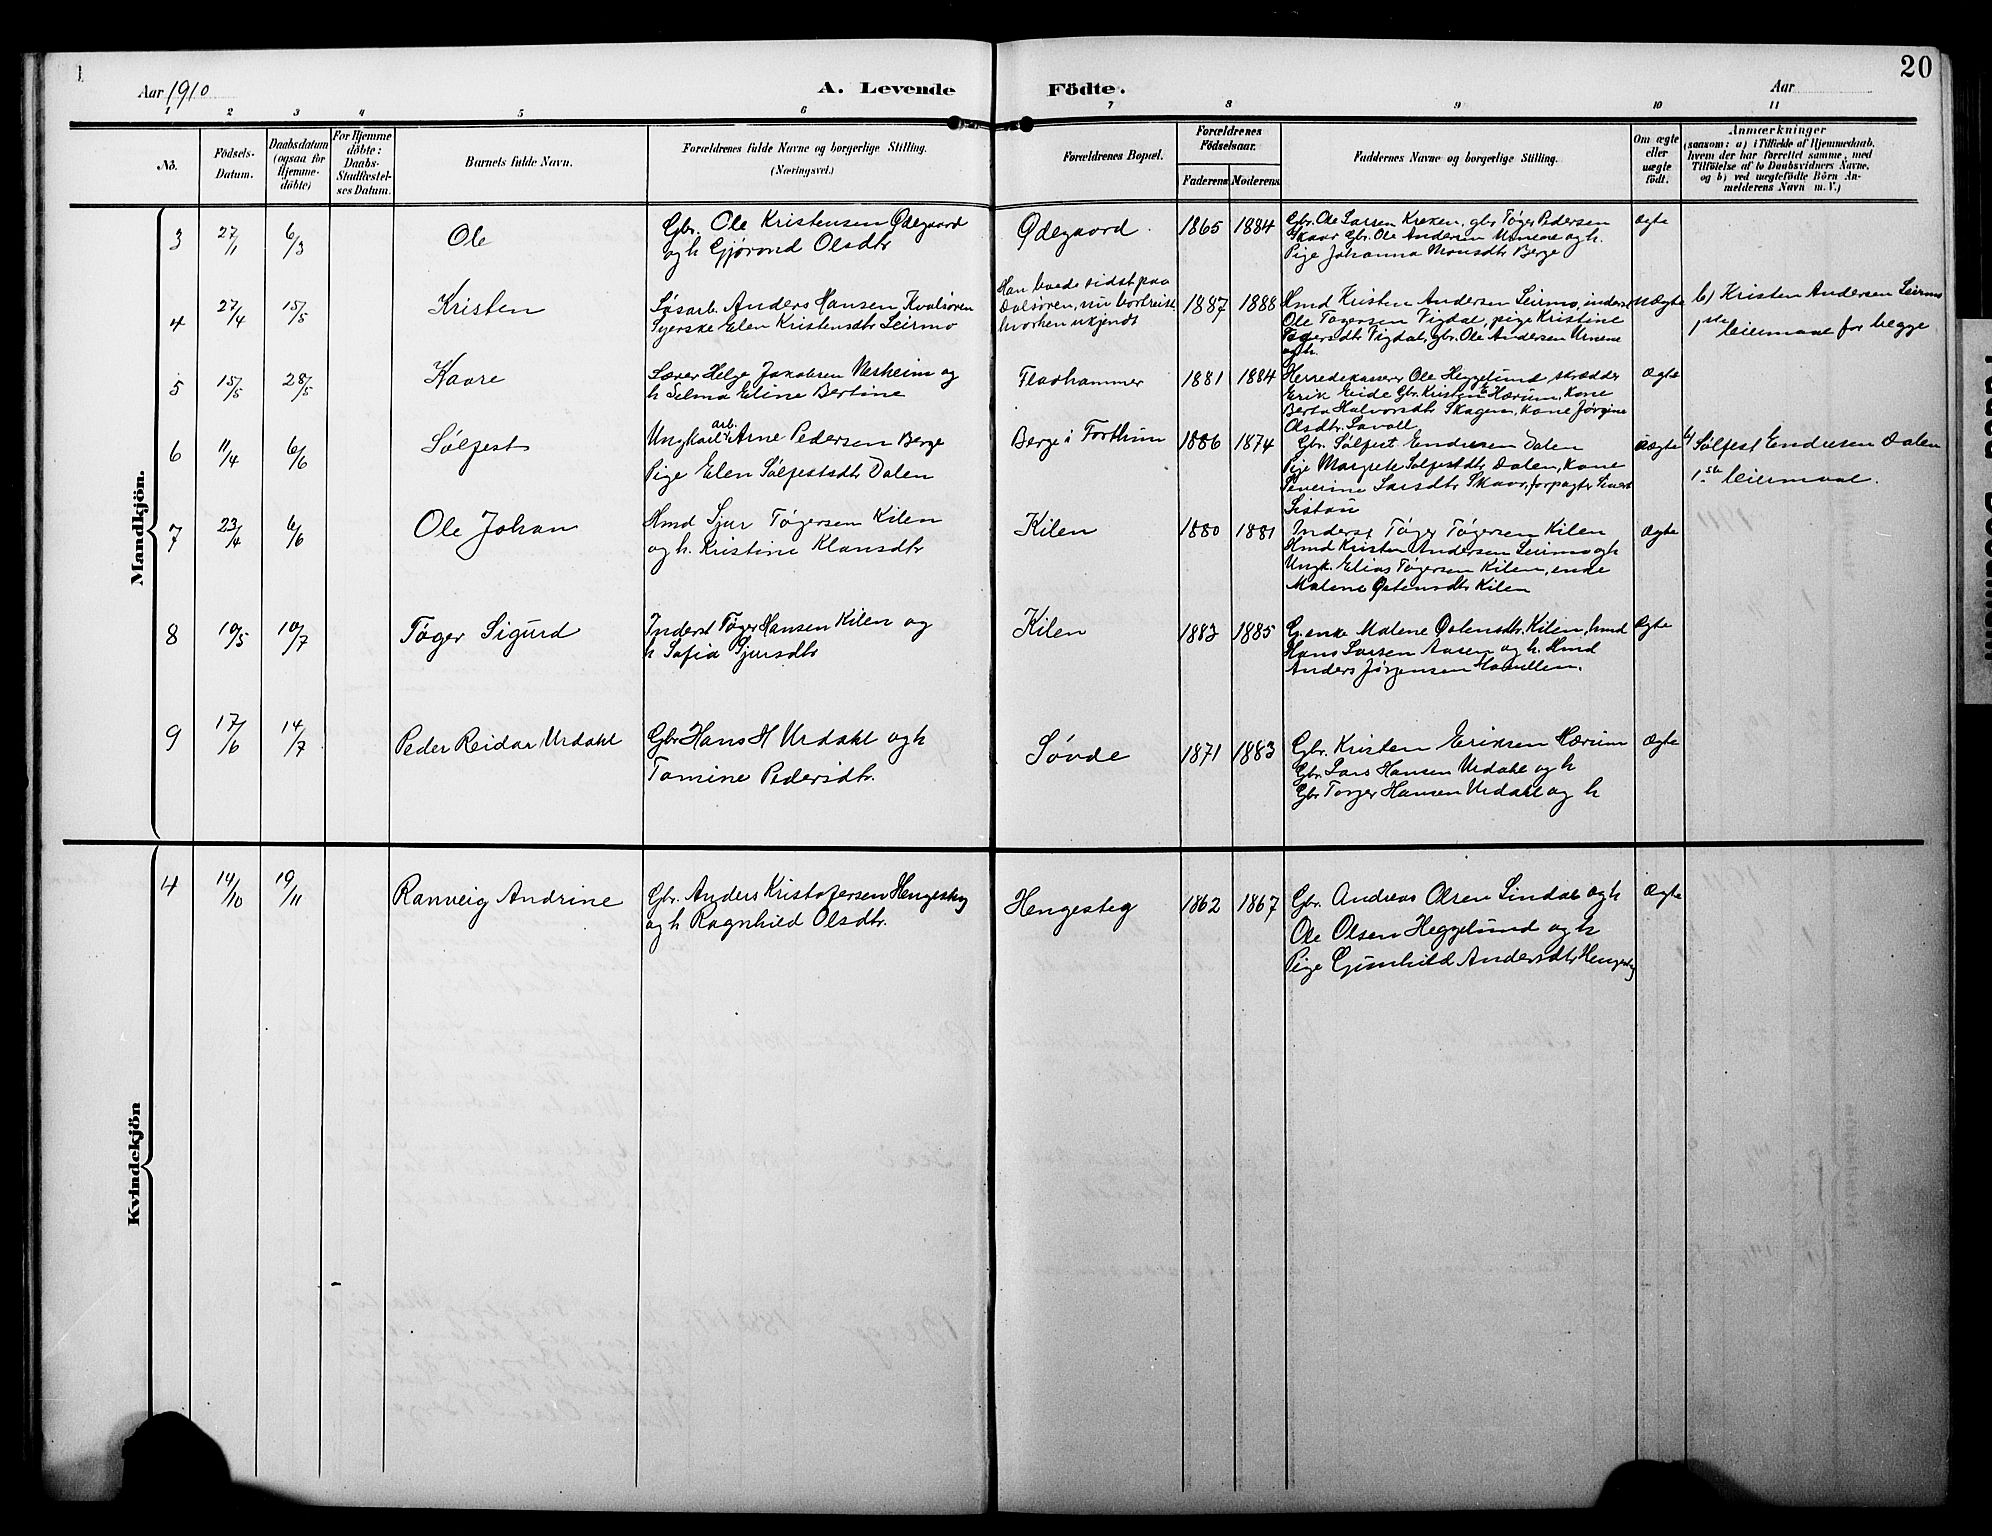 1
20
Aar 1910
A. Levende Födte.
Aar
1 2 3 4 5 6 7 8 9 10 11
Nó.
Födsels-
Datum.
Daabsdatum
(ogsaa for
Hjemme-
döbte)
For Hjemme
döbte:
Daabs-
Stadfæstel-
ses Datum.
Barnets fulde Navn.
Forældrenes fulde Navne og borgerlige Stilling.
(Næringsvei.)
Forældrenes Bopæl.
Forældrenes
Födselsaar.
Faderens. Moderens.
Faddernes Navne og borgerlige Stilling.
Om ægte
eller
uægte
födt.
Anmærkninger
(saasom: a) i Tilfælde af Hjemmedaab,
hvem der har forrettet samme, med
Tilföielse af to Daabsvidners Navne,
og b) ved uægtefödte Börn An-
melderens Navn m. V.)
Mandkjön.
3 27/1 6/3 Ole
Gbr. Ole Kristensen Ødegaard
og h. Gjørond Olsdtr
Ødegaard. 1865 1884
Gbr. Ole Larsen Kreken, gbr Tøger Pedersen
Skaar Gbr. Ole Andersen Urnene og h.
Pige Johanna Monsdtr Berge
ægte
4 27/4 15/5 Kristen
Løsarb. Anders Hansen Kvalsøren
Syerske Elen Kristensdtr Leirmo
Han boede sidst paa
Dalsøren, nu bortreist
hvorhen ukjendt
1887 1888
Hmd Kristen Andersen Leirmo, inderst
Ole Tøgersen Vigdal, pige Kristine
Tøgersdtr Vigdal, gbr. Ole Andersen Urnene
og h.
uægte
b) Kristen Andersen Leirmo
1ste leiermaal for begge
5 15/5 28/5 Kaare
Lærer Helge Jakobsen Nesheim og
h Selma Eline Bertine
Flaahammer 1881 1884
Herredskasserer Ole Heggelund skrædder
Erik Eide Gbr. Kristen E Hærum, Kone
Berta Halvorsdtr Skagen, Kone Jørgine
Olsdtr.
Ægte
6 11/4 6/6 Sølfest
Ungkarl arb. Arne Pedersen Berge
Pige Elen Sølfestsdtr Dalen
Berge i Forthun 1886 1874
Gbr. Sølfest Endresen Dalen
Pige Margrete Sølfestdtr Dalen, Kone
Severine Larsdtr Skaar, forpagter Sivert
uægte
b) Sølfest Endresen Dalen
1ste leiermaal.
7 23/4 6/6 Ole Johan
Hmd Sjur Tøgersen Kilen
og h. Kristine Klausdtr
Kilen 1880 1881
Inderst Tøger Tøgersen Kilen
Hmd Kristen Andersen Leirmo og h
Ungk. Elias Tøgersen Kilen, enke
Malene Østensdtr Kilen
Ægte
8 10/5 10/7 Tøger Sigurd
Inderst Tøger Hansen Kilen og
h Sofia Sjursdtr
Kilen 1883 1885
G. enke Malene Østensdtr. Kilen, hmd
Hans Larsen Aasen og h. Hmd
Anders Jørgensen
Ægte
9 17/6 14/7 Peder Reidar Urdahl
Gbr Hans H Urdahl og h
Tomine Pedersdtr.
Søvde 1871 1883
Gbr. Kristen Eriksen Hærum
Gbr. Lars Hansen Urdahl og h
Gbr Torger Hansen Urdahl og h
Ægte
Kvindekjön
4 14/10 19/11 Ranveig Andrine
Gbr. Anders Kristofersen Hengesteg
og h Ragnhild Olsdtr.
Hengesteg 1862 1867
Gbr. Andreas Olsen Lindal og h
Ole Olsen Heggelund og h
Pige Gunhild Andersdtr Hengesteg
Ægte